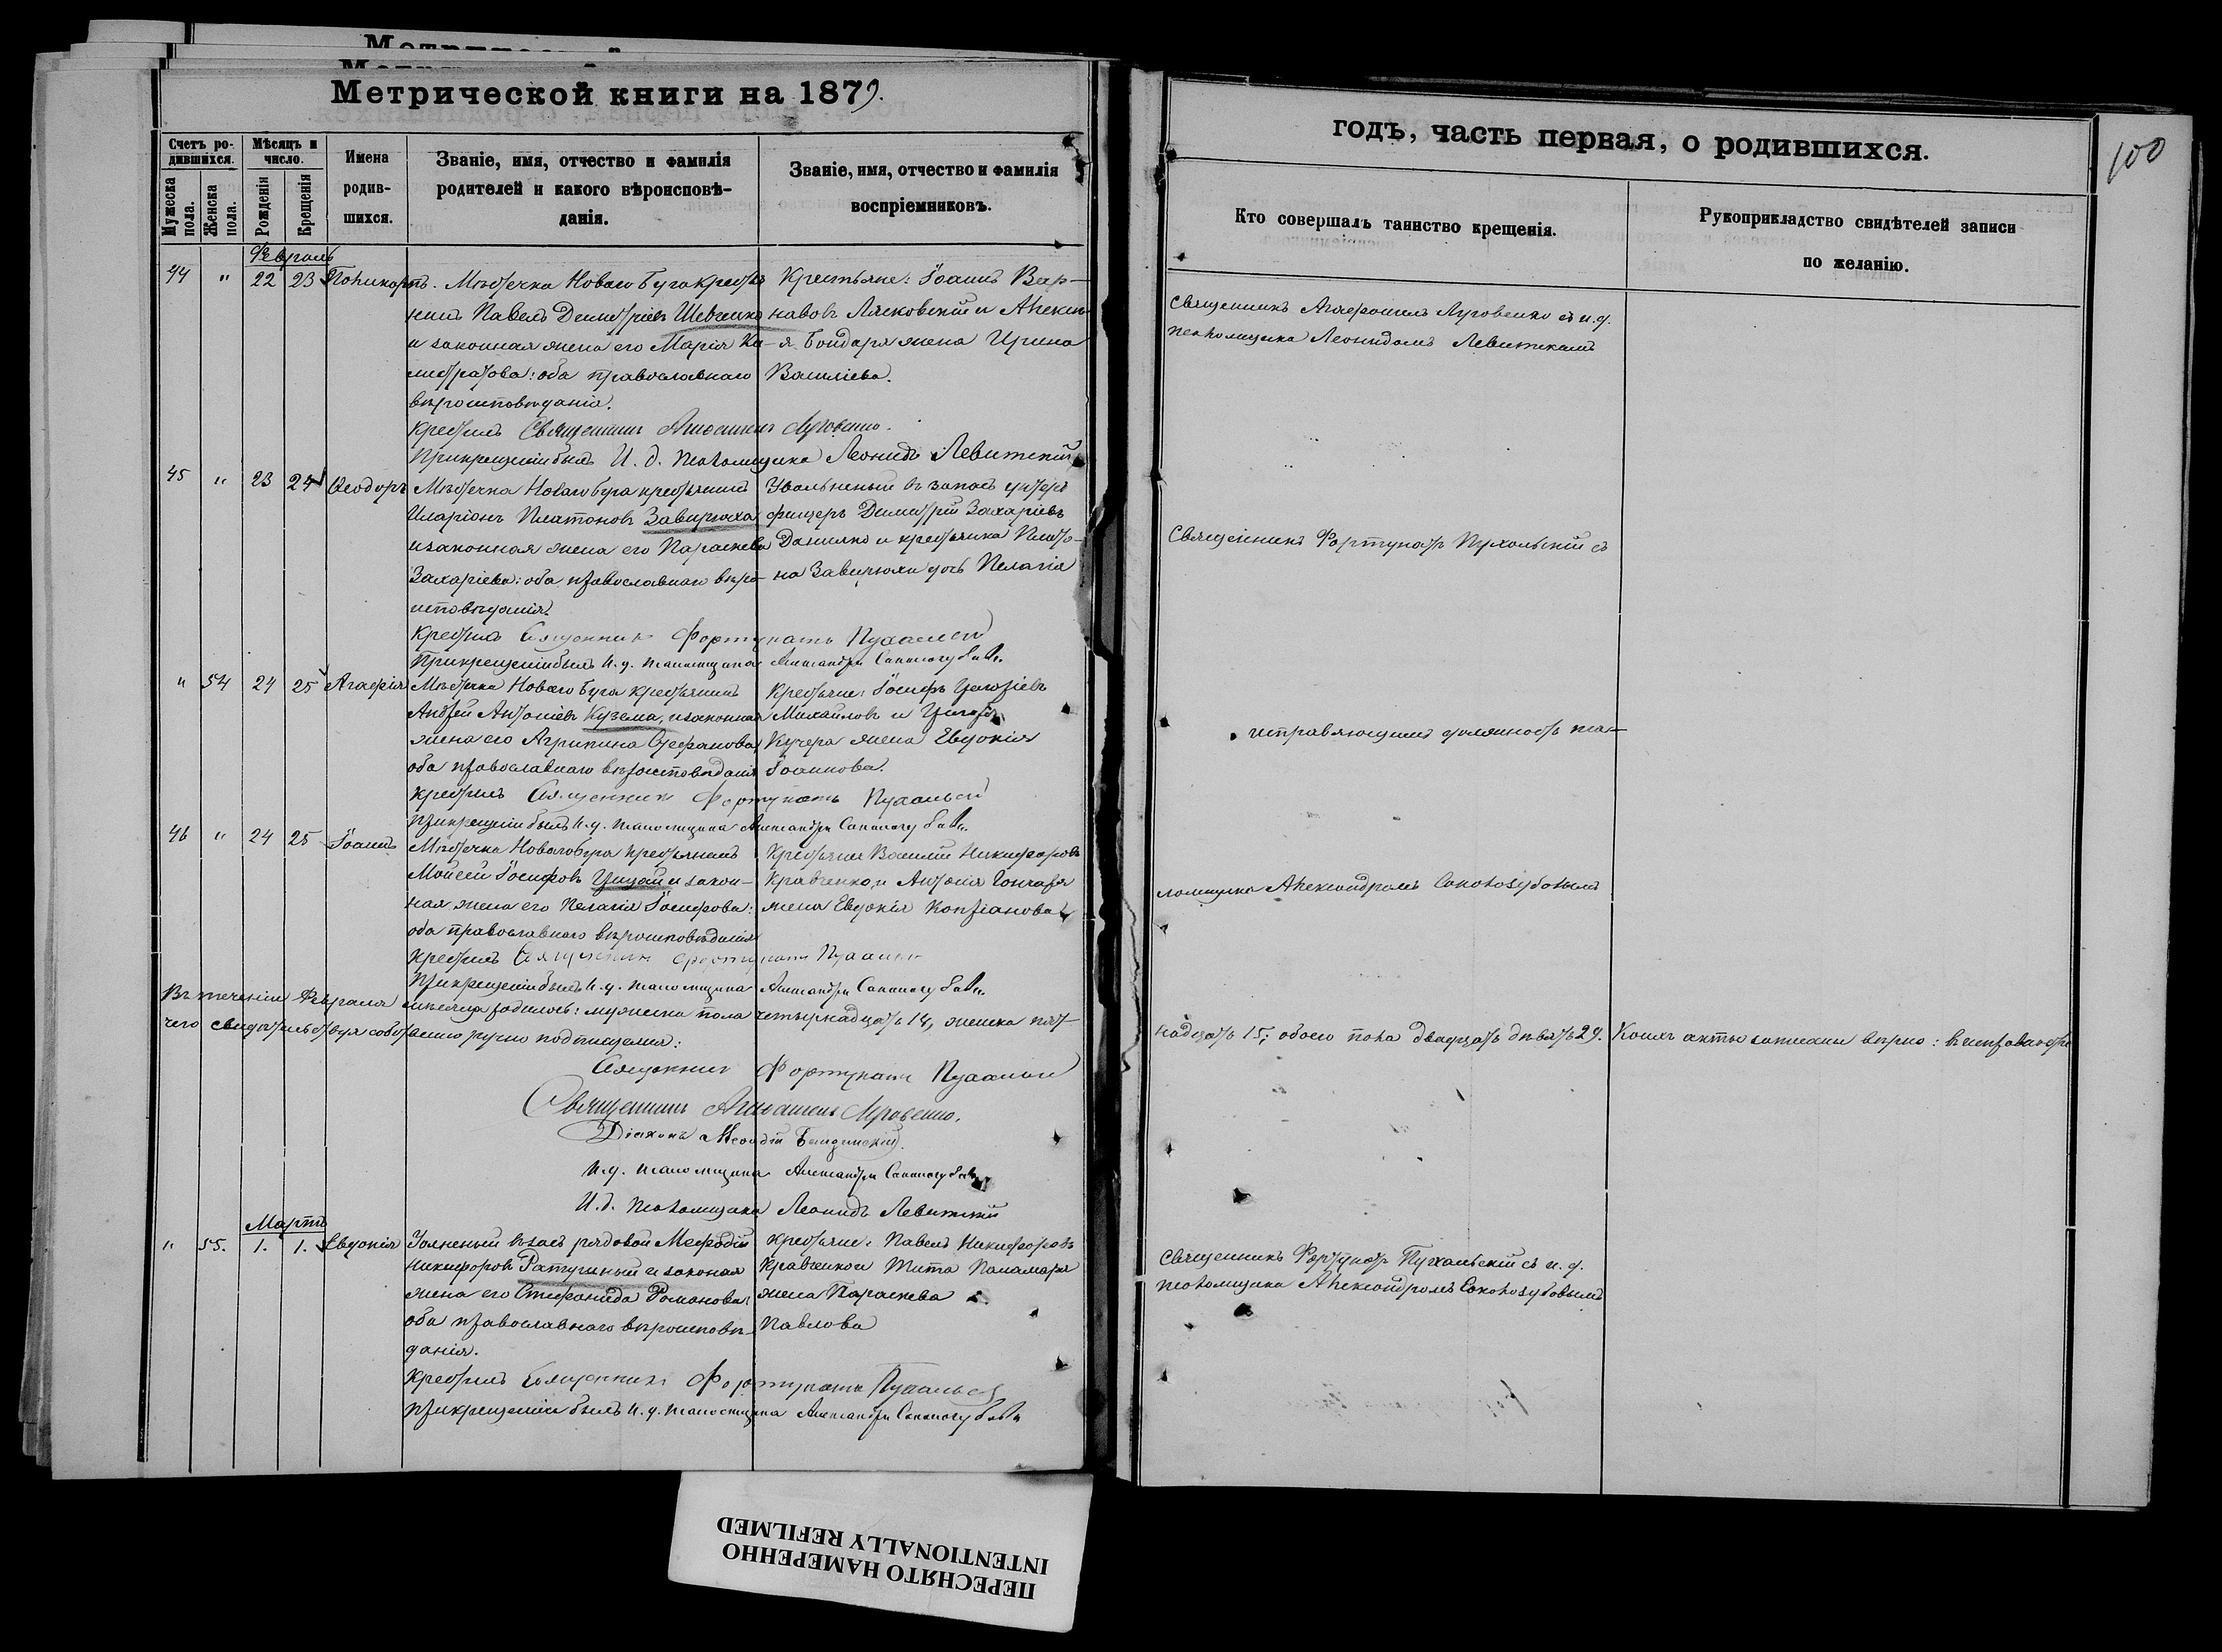 Метрической книги на 1879.
Счетъ родившихся.
Мѣсяцъ и число.
Мужеска пола.
Женска пола.
Рожденія
Крещенія
Имена родившихся.
Званіе, имя, отчество и фамилія
родителей и какого вѣроисповѣ-
данія.
Званіе, имя, отчество и фамилія
воспріемниковъ.
Февраль
44 " 22 23 Поликарпъ.
Мѣстечка Новаго Буга крестья
нинъ Павелъ Димитріевъ Шевченко
и законная жена его Марія Ка-
листратова: оба православнаго
вѣроисповѣданія.
Крестьяне: Іоаннъ Вар-
навовъ Лясковскій и Алексѣ
я Бондаря жена Ирина
Василіева.
Крестилъ Священникъ Агаѳангелъ Луговенко.
При крещеніи былъ И. д. псаломщика Леонидъ Левитскій
45 " 23 24 Ѳеодоръ
Мѣстечка Новаго Буга крестьянинъ
Иларіонъ Платоновъ Завирюха
и законная жена его Параскева
Захаріева: оба православнаго вѣро-
исповѣданія.
Уволенный въ запасъ унтеръ
фицеръ Димитрій Захаріевъ
Данилко и крестьянка Плато-
на Завирюхи дочь Пелагія
Крестилъ Священникъ Фортунатъ Пухальскій
При крещеніи былъ и. д. псаломщика Александръ Соколозубовъ
" 54 24 25 Агафія
Мѣстечка Новаго Буга крестьянинъ
Андрей Антоніевъ Кузема, и законная
жена его Агрипина Стефанова
оба православнаго вѣроисповѣданія
Крестьяне: Іосифъ
Михайловъ и
Кучера жена Евдокія
Іоаннова.
Крестилъ Священникъ Фортунатъ Пухальскій
При крещеніи былъ и. д. псаломщика Александръ Соколозубовъ
46 " 24 25 Іоаннъ
Мѣстечка Новаго Буга крестьянинъ
Моисей Іосифовъ и закон-
ная жена его Пелагія Іосифова:
оба православнаго вѣроисповѣданія
Крестьяне Василій Никифоровъ
Кравченко и Антонія Гончаря
жена Евдокія Кипріанова
Крестилъ Священникъ Фортунатъ Пухальскій
При крещеніи былъ и. д. псаломщика Александръ Соколозубовъ
Въ теченіи Февраля мѣсяца родилось: мужеска пола четырнадцать 14, женска пят-
чего свидѣтельствуя собственно ручно подписуемся:
Священникъ Фортунатъ Пухальскій
Священникъ Агаѳангелъ Луговенко.
Діаконъ
и. д. псаломщика Александръ Соколозубовъ
И. д. псаломщика Леонидъ Левитскій
Мартъ
" 55. 1. 1. Евдокія
Уволенный въ запасъ рядовой Мефодій
Никифоровъ Ратушный и законная
жена его Стефанида Романова:
оба православнаго вѣроисповѣ-
данія.
Крестьяне: Павелъ Никифоровъ
Кравченко и Тита Паламаря
жена Параскева
Павлова
Крестилъ Священникъ Фортунатъ Пухальскій
При крещеніи былъ и. д. псаломщика Александръ Соколозубовъ
годъ, часть первая, о родившихся.
100
Кто совершалъ таинство крещенія.
Рукоприкладство свидѣтелей записи
по желанію.
Священникъ Агаѳангелъ Луговенко съ и. д.
псаломщика Леонидомъ Левитскимъ
Священникъ Фортунатъ Пухальскій съ
исправляющимъ должность пса-
ломщика Александромъ Соколозубовымъ
надцать 15; обоего пола двадцать девять 29. Коихъ акты записаны вѣрно:
Священникъ Фортунатъ Пухальскій съ и. д.
псаломщика Александромъ Соколозубовымъ
ПЕРЕСНЯТО НАМЕРЕННО
INTENTIONALLY REFILMED